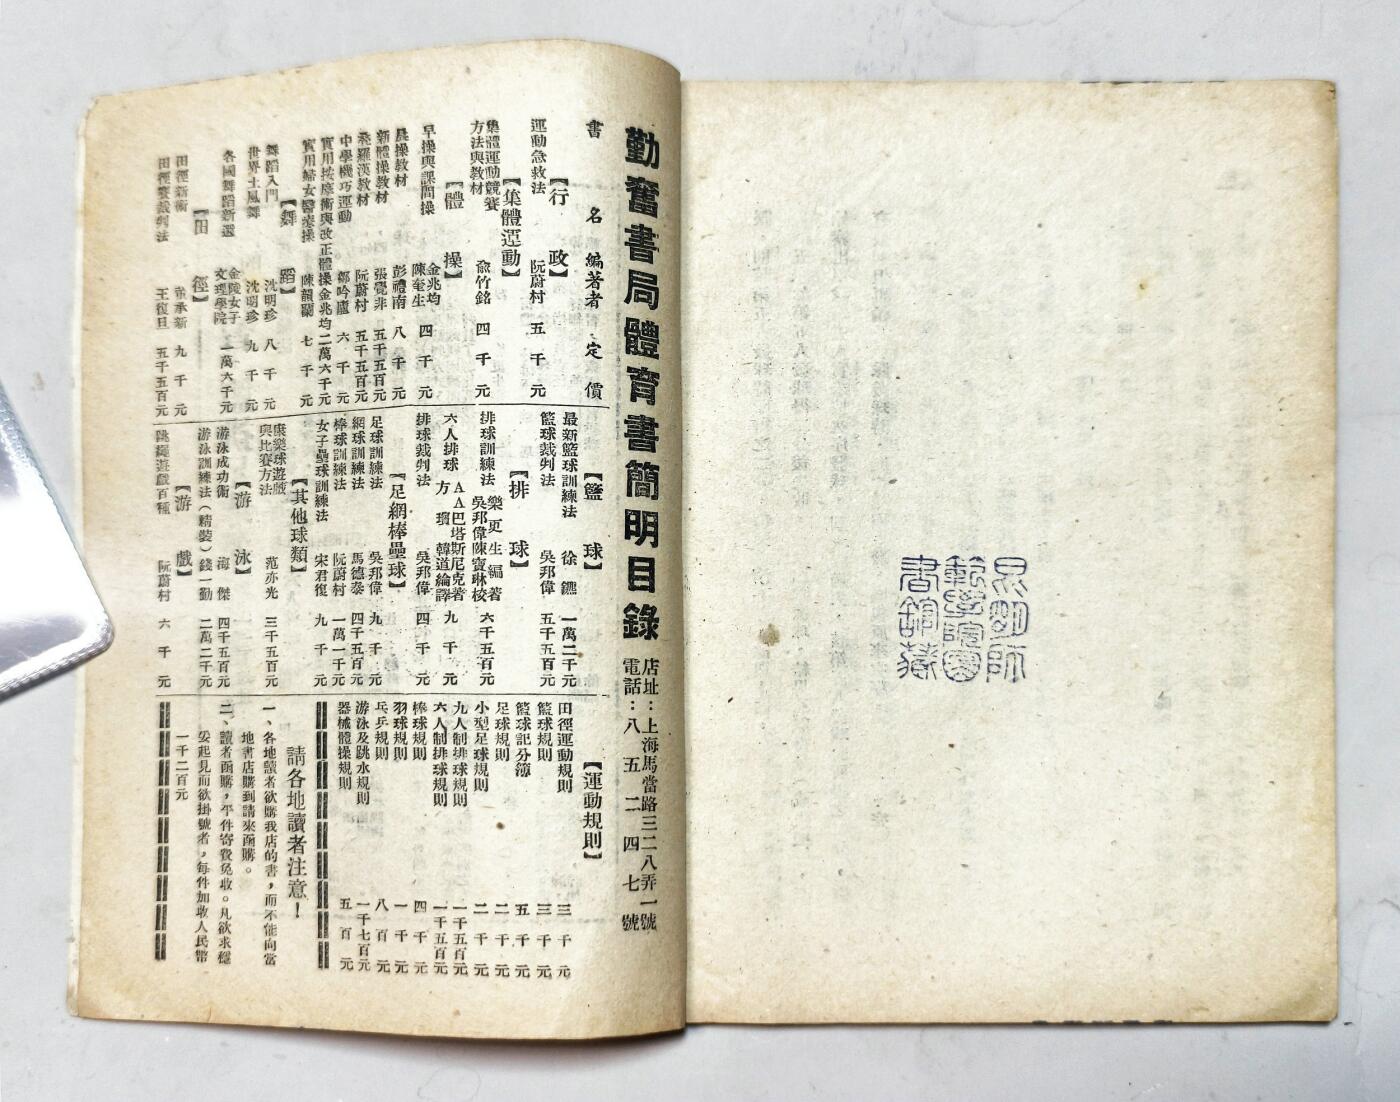 勤奮書局體育書簡明目錄
店址：上海馬當路三二八弄一號
電話：八五二四七號
書名 編著者 定價
【行政】
運動急救法 阮蔚村 五千元
【集體運動】
集體運動競賽方法與教材 兪竹銘 四千元
【體操】
早操與課間操 金兆均 陳奎生 四千元
晨操教材 彭禮南 八千元
新體操教材 張覺非 五千五百元
飛羅漢教材 阮蔚村 五千五百元
中學機巧運動 鄭吟廬 六千元
實用按摩術與改正體操 金兆均 二萬六千元
實用婦女醫療操 陳韻蘭 七千元
【舞蹈】
舞蹈入門 沈明珍 八千元
世界土風舞 沈明珍 九千元
各國舞蹈新選 金陵女子文理學院 一萬六千元
【田徑】
田徑新術 董承新 九千元
田徑賽裁判法 王復旦 五千五百元
【籃球】
最新籃球訓練法 徐 一萬二千元
籃球裁判法 吳邦偉 五千五百元
【排球】
排球訓練法 樂更生編著 吳邦偉陳寶琳校 六千五百元
六人排球 方瓊 AA巴塔斯尼克著 韓道綸譯 九千元
排球裁判法 吳邦偉 四千元
【足網棒壘球】
足球訓練法 吳邦偉 九千元
網球訓練法 馬德泰 八千元
棒球訓練法 阮蔚村 一萬一千元
女子壘球訓練法 宋君復 九千元
【其他球類】
康樂球遊戲與比賽方法 范亦光 三千五百元
【游泳】
游泳成功術 海傑 四千五百元
游泳訓練法（精裝） 錢一勤 二萬二千元
【游戲】
跳繩遊戲百種 阮蔚村 六千元
【運動規則】
田徑運動規則 三千元
籃球規則 三千元
籃球記分簿 五千元
足球規則 二千元
小型足球規則 二千元
九人制排球規則 一千五百元
六人制排球規則 一千五百元
棒球規則 四千元
羽球規則 一千元
乓乒規則 八百元
游泳及跳水規則 一千七百元
器械體操規則 五百元
請各地讀者注意！
一、各地讀者欲購我店的書，而不能向當
地書店購到請來函購。
二、讀者函購，平件寄費免收。凡欲求穩
妥起見而欲掛號者，每件加收人民幣
一千二百元
昆明師
範學院圖
書館藏